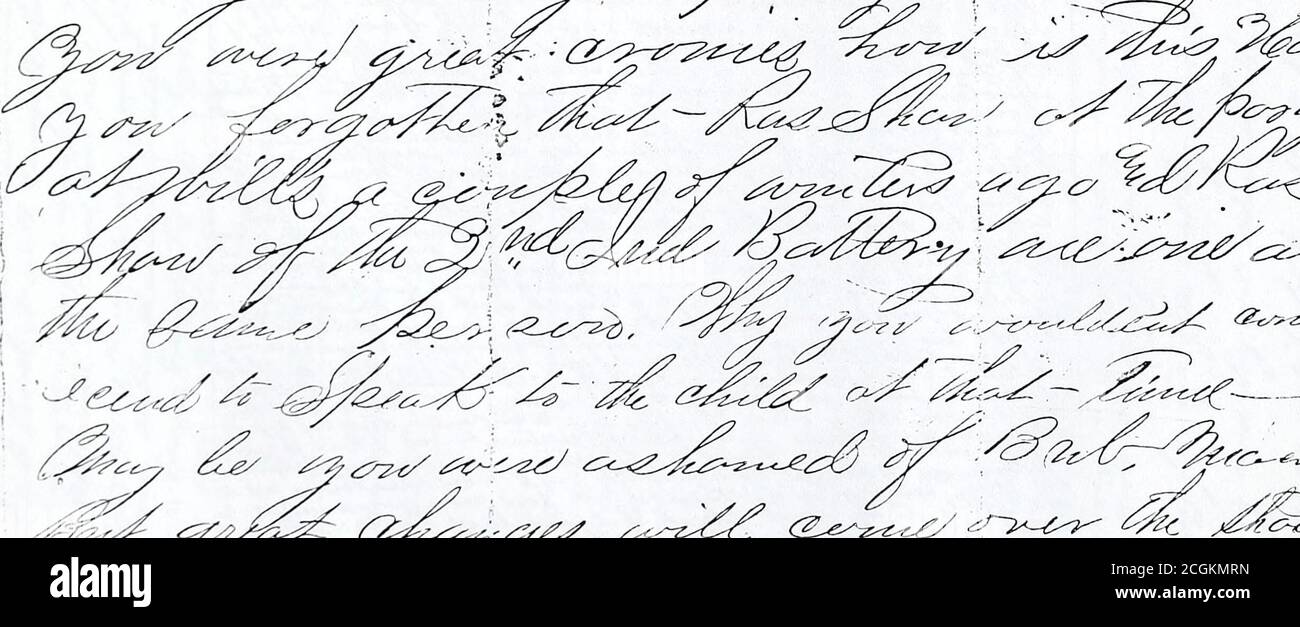 You were great cronies how is this
you forgotten that - Ras Shaw at the
at Mills a couple of winters ago and Ras
Shaw of the 2nd Ind Battery are one a
the same person. Why you wouldent con
scend to Speak to the child at that - time —
May be you were ashamed of Bub,
But great changes will come over the
alamy
Image ID: 2CGKMRN
www.alamy.com